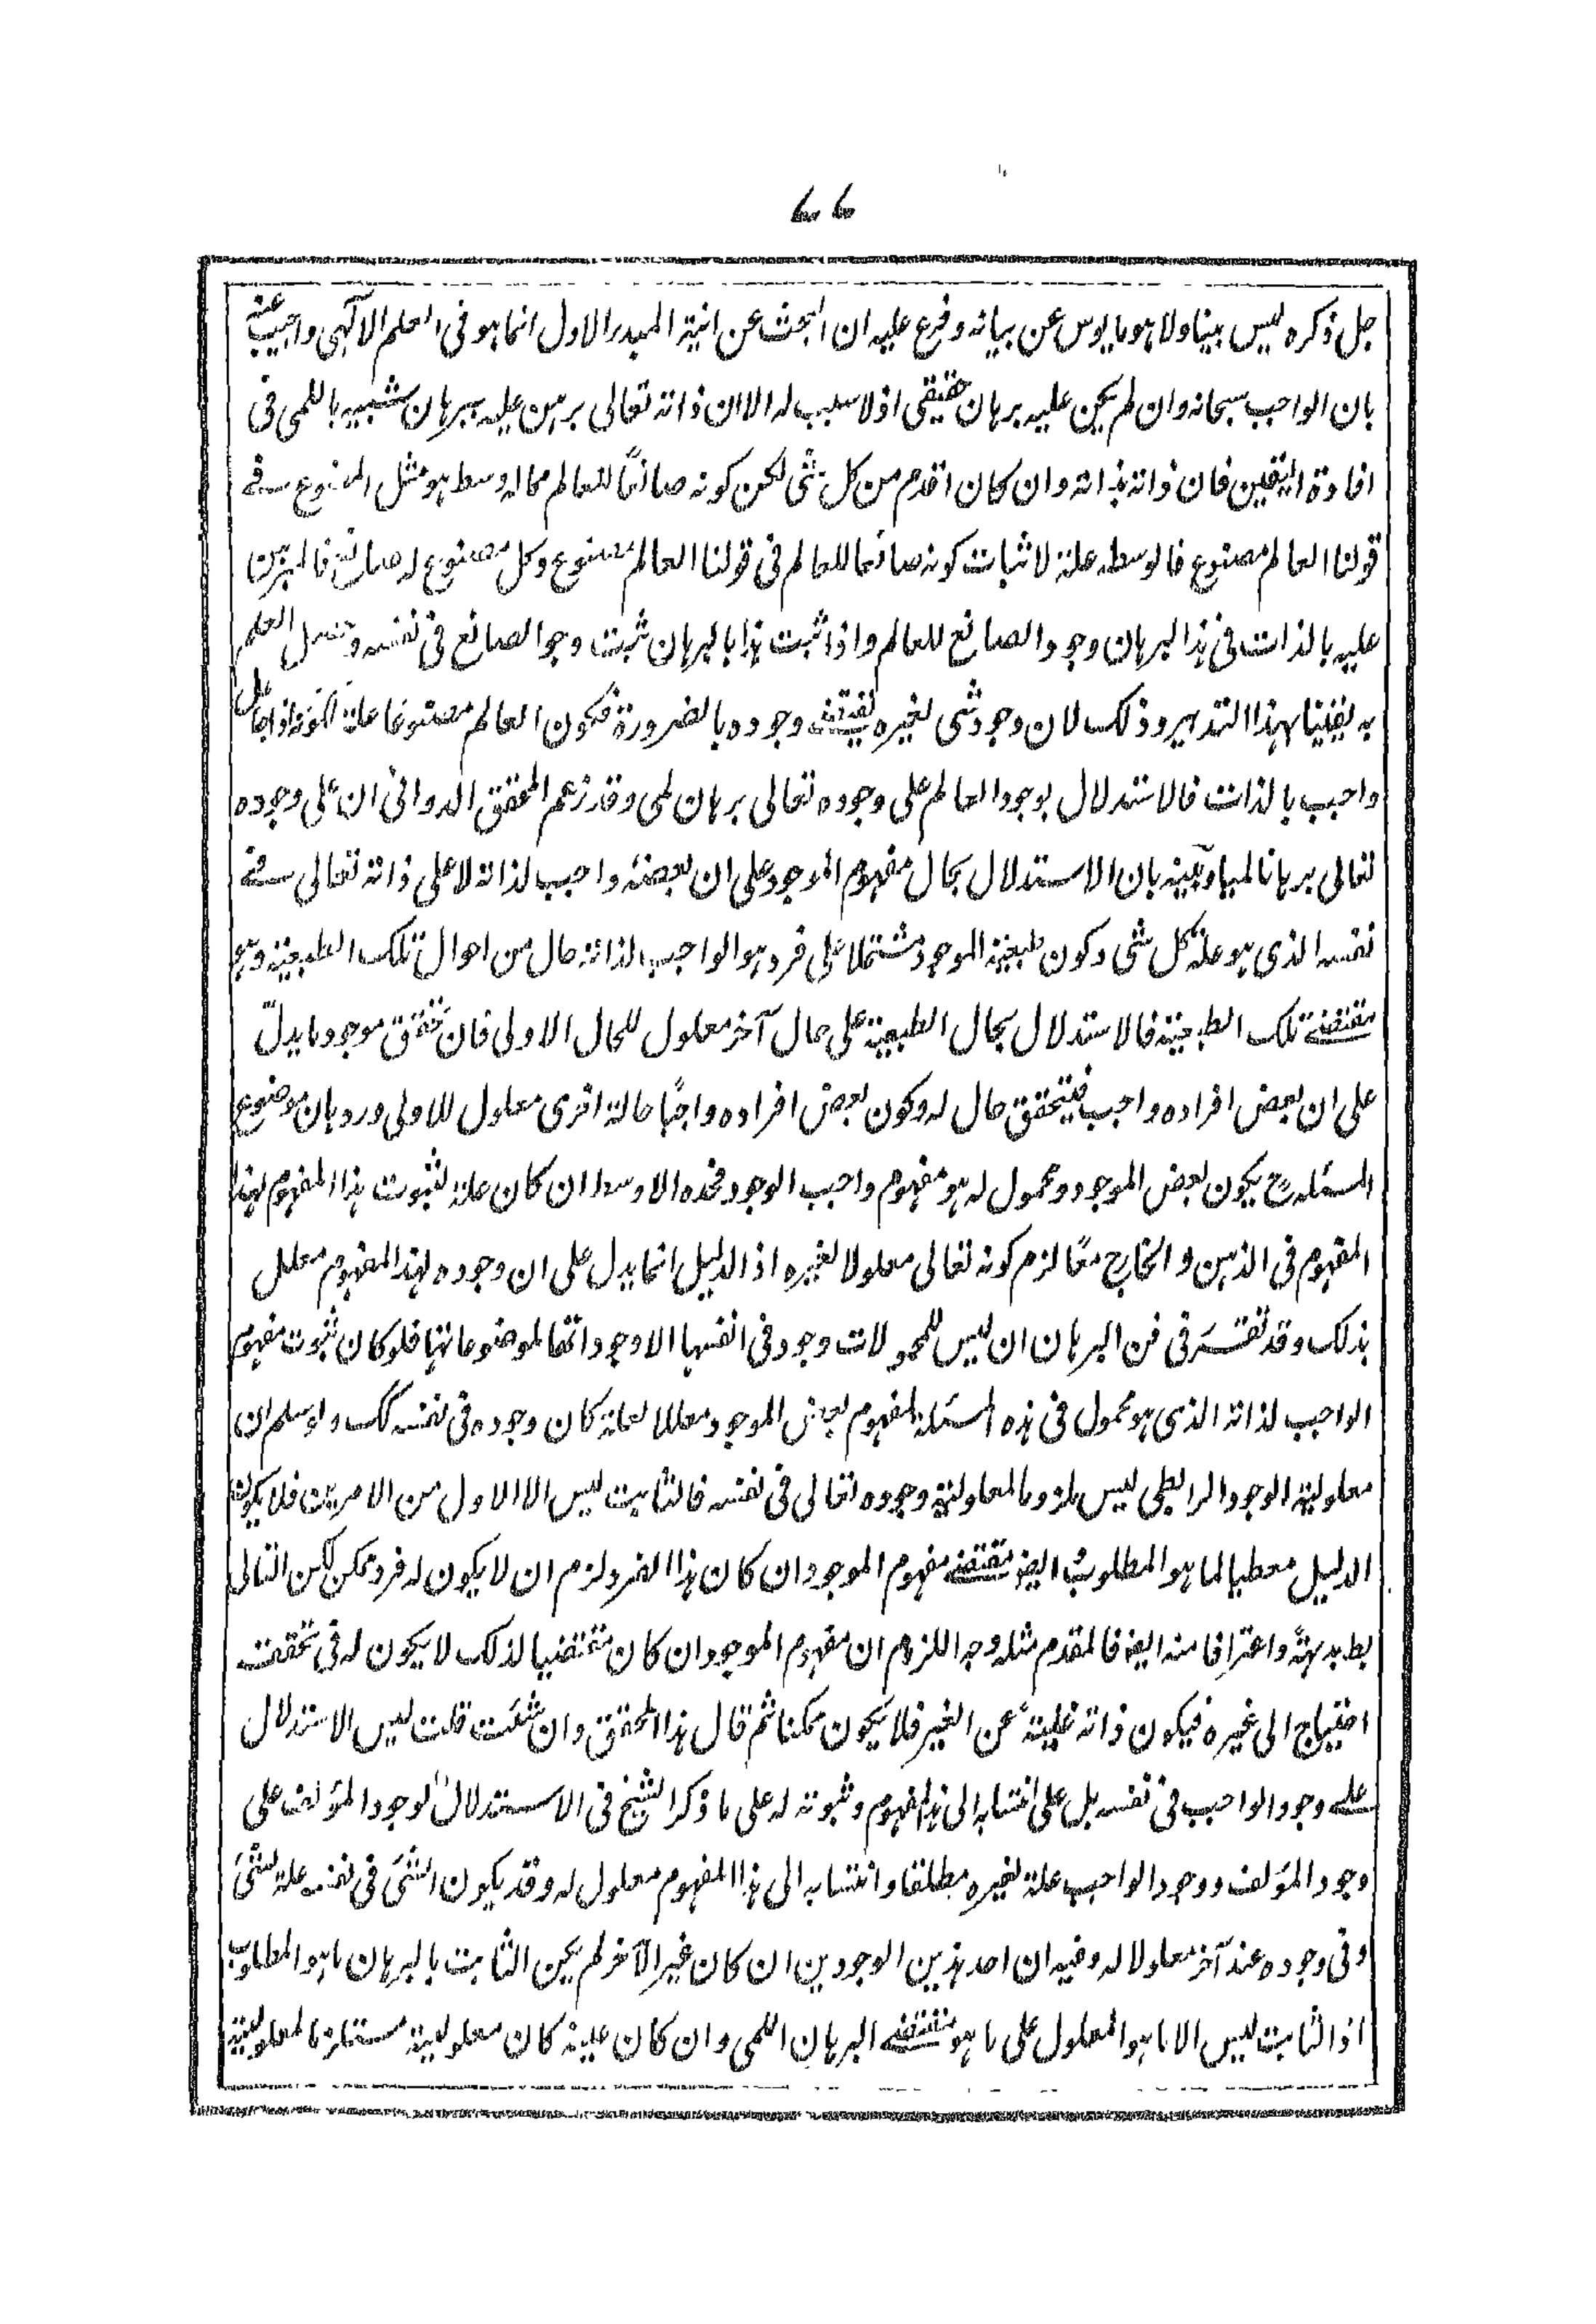 ٧٧
جل ذكره ليس بينا ولا هو مايوس عن بيانه وفرع عليه ان البحث عن انية المبدء الاول انما هو فى العلم الالٓهى واجيب عنه
بان الواجب سبحانه وان لم يكن عليه برهان حقيقى اذ لا سبب له الا ان ذاته تعالى برهن عليه ببرهان شبيه باللمى فى
افادة اليقين فان ذاته بذاته وان كان اقدم من كل شى لكن كونه صانعًا للعالم مما له وسط هو مثل المصنوع فے
قولنا العالم مصنوع فالوسط علة لاثبات كونه صانعا للعالم فى قولنا العالم مصنوع وكل مصنوع له صانع فالمبرهن
عليه بالذات فى هذا البرهان وجود الصانع للعالم واذا ثبت هذا بالبرهان ثبت وجود الصانع فى نفسه وحصل العلم
به يقينا بهذا التدبير وذلك لان وجود شى لغيره يقتضے وجوده بالضرورة فيكون العالم مصنوعا علة لكونه ذا جاعل
واجب بالذات فالاستدلال بوجود العالم على وجوده تعالى برهان لمى وقد زعم المحقق الدوانى ان على وجوده
تعالى برهانا لميا وبينه بان الاستدلال بحال مفهوم الموجود على ان بعضه واجب لذاته لا على ذاته تعالى فے
نفسه الذى هو علة كل شى وكون طبيعة الموجود مشتملا على فرد هو الواجب لذاته حال من احوال تلك الطبيعة وهو
مقتضے تلك الطبيعة فالاستدلال بحال الطبيعة على حال آخر معلول للحال الاولى فان تحقق موجود ما يدلّ
على ان بعض افراده واجب فيتحقق حال له وكون بعض افراده واجبًا حالة اخرى معلول للاولى ورد بان موضوع
المسئلة ح يكون بعض الموجود ومحمول له هو مفهوم واجب الوجود فحده الاوسط ان كان علة لثبوت هذا المفهوم لهذا
المفهوم فى الذهن و الخارج معًا لزم كونه تعالى معلولا لغيره اذ الدليل انما يدل على ان وجوده لهذا المفهوم معلل
بذلك وقد تقرر فى فن البرهان ان ليس للمحمولات وجود فى انفسها الا وجوداتها لموضوعاتها فلو كان ثبوت مفهوم
الواجب لذاته الذى هو محمول فى هذه المسئلة لمفهوم بعض الموجود معللا لعلة كان وجوده فى نفسه كك ولو سلم ان
معلولية الوجود الرابطى ليس ملزوما لمعلولية وجوده تعالى فى نفسه فالثابت ليس الا الاول من الامرين فلا يكون
الدليل معطيا لما هو المطلوب ايضا مقتضے مفهوم الموجود ان كان هذا الفرد لزم ان لا يكون له فرد ممكن لكن التالى
بط بديهةً واعترافا منه ايضا فالمقدم مثله وجه اللزوم ان مفهوم الموجود ان كان مقتضيا لذلك لا يكون له فى تحققه
احتياج الى غيره فيكون ذاته غنية عن الغير فلا يكون ممكنا ثم قال هذا المحقق وان شئت قلت ليس الاستدلال
علے وجود الواجب فى نفسه بل على انتسابه الى هذا المفهوم وثبوته له على ما ذكر الشيخ فى الاستدلال لوجود المؤلف على
وجود المؤلف ووجود الواجب علة لغيره مطلقا وانتسابه الى هذا المفهوم معلول له وقد يكون الشئ فى نفسه علة لشئ
وفى وجوده عند آخر معلولا له وفيه ان احد هذين الوجودين ان كان غير الآخر لم يكن الثابت بالبرهان ما هو المطلوب
اذ الثابت ليس الا ما هو المعلول على ما هو مقتضے البرهان اللمى وان كان عينه كان معلولية مستلزما لمعلولية